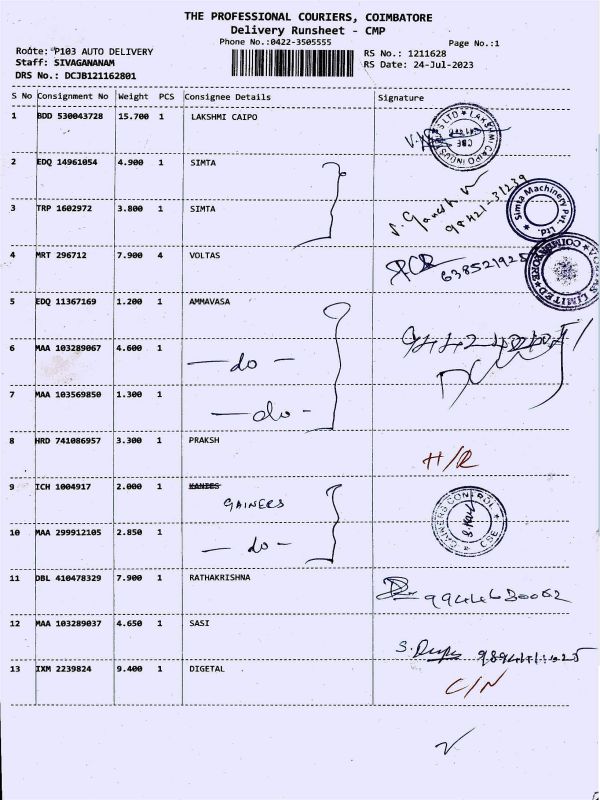 THE PROFESSIONAL COURIERS, COIMBATORE
Delivery Runsheet - CMP
Phone No.:0422-3505555
Page No.:1
Route: P103 AUTO DELIVERY
RS No.: 1211628
Staff: SIVAGANANAM
RS Date: 24-Jul-2023
DRS No.: DCJB121162801
S No Consignment No Weight PCS Consignee Details Signature
1 BDD 530043728 15.700 1 LAKSHMI CAIPO
2 EDQ 14961054 4.900 1 SIMTA
3 TRP 1602972 3.800 1 SIMTA
Simta Machinery Pvt. Ltd.
4 MRT 296712 7.900 4 VOLTAS
COIMBATORE
LIMITED
5 EDQ 11367169 1.200 1 AMMAVASA
6 MAA 103289067 4.600 1
-do-
7 MAA 103569850 1.300 1
-do-
8 HRD 741086957 3.300 1 PRAKSH H/R
9 ICH 1004917 2.000 1
GAINERS
GAINERS CONTROL CBE
10 MAA 299912105 2.850 1
-do-
11 DBL 410478329 7.900 1 RATHAKRISHNA
9944630062
12 MAA 103289037 4.650 1 SASI
13 IXM 2239824 9.400 1 DIGETAL
C/N